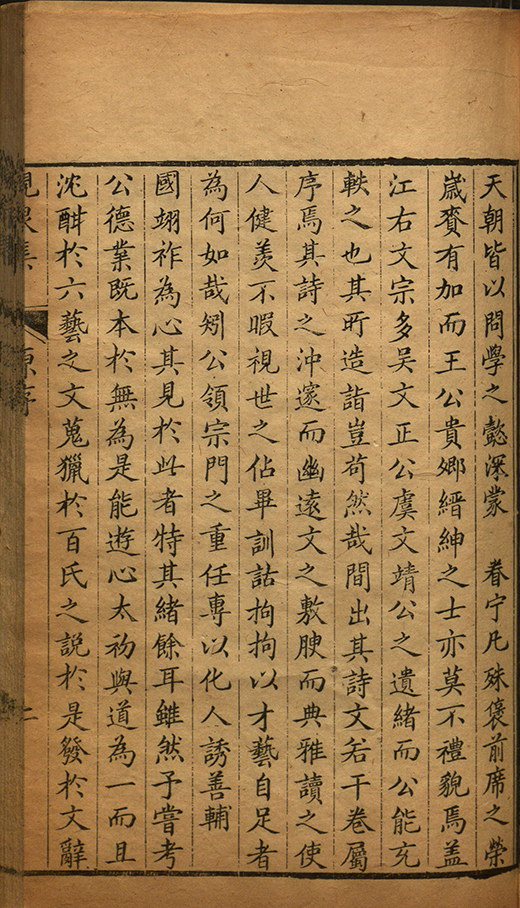 天朝皆以問學之懿深蒙 眷宁凡殊褒前席之榮
歲賚有加而王公貴卿縉紳之士亦莫不禮貌焉盖
江右文宗多吴文正公虞文靖公之遺緒而公能充
軼之也其所造詣豈苟然哉間出其詩文若干卷屬
序焉其詩之沖邃而幽遠文之敷腴而典雅讀之使
人健羡不暇視世之佔畢訓詁拘拘以才藝自足者
為何如哉矧公領宗門之重任專以化人誘善輔
國翊祚為心其見於此者特其緒餘耳雖然予嘗考
公德業既本於無為是能遊心太初與道為一而且
沈酣於六藝之文蒐獵於百氏之說於是發於文辭
峴泉集 原序 二